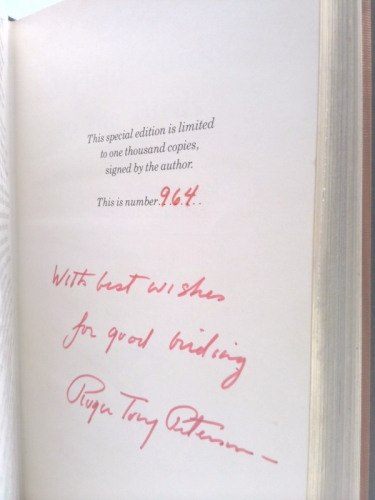 This special edition is limited
to one thousand copies,
signed by the author.
This is number.964..
With best wishes
for good birding
Roger Tory Peterson